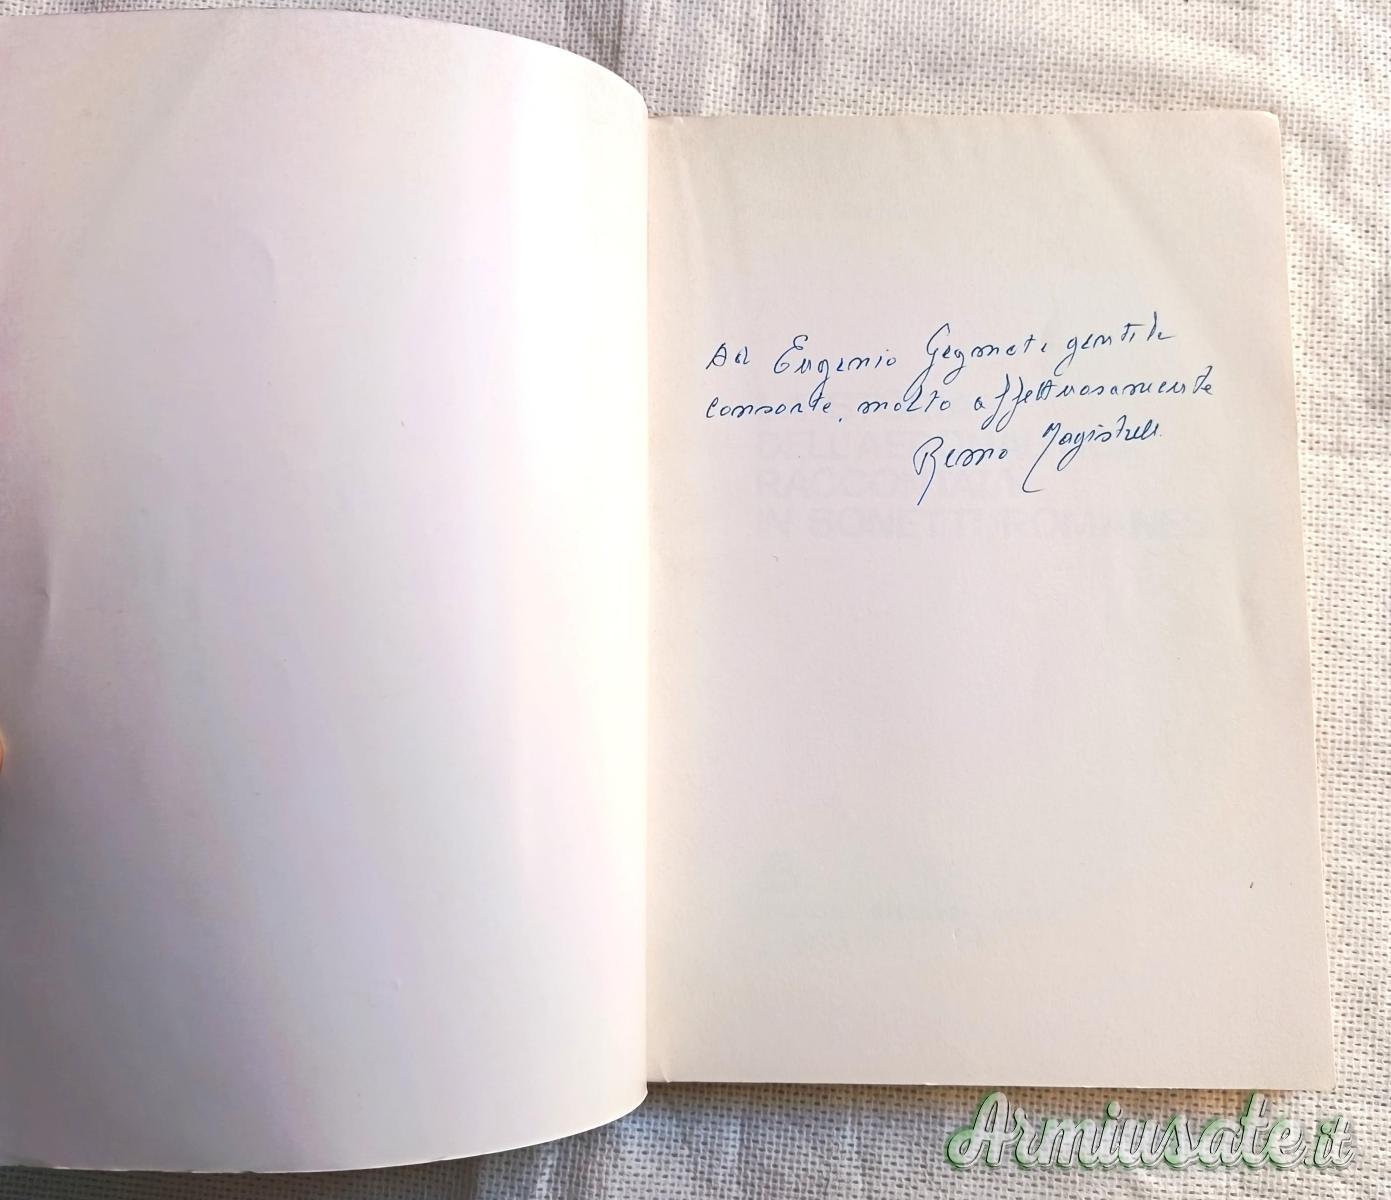 Ad Eugenio gentile
consorte, molto affettuosamente
Remo Magistreli
DELL'AE
RACCONTATA
IN SONETTI ROMANES
Armiusate.it